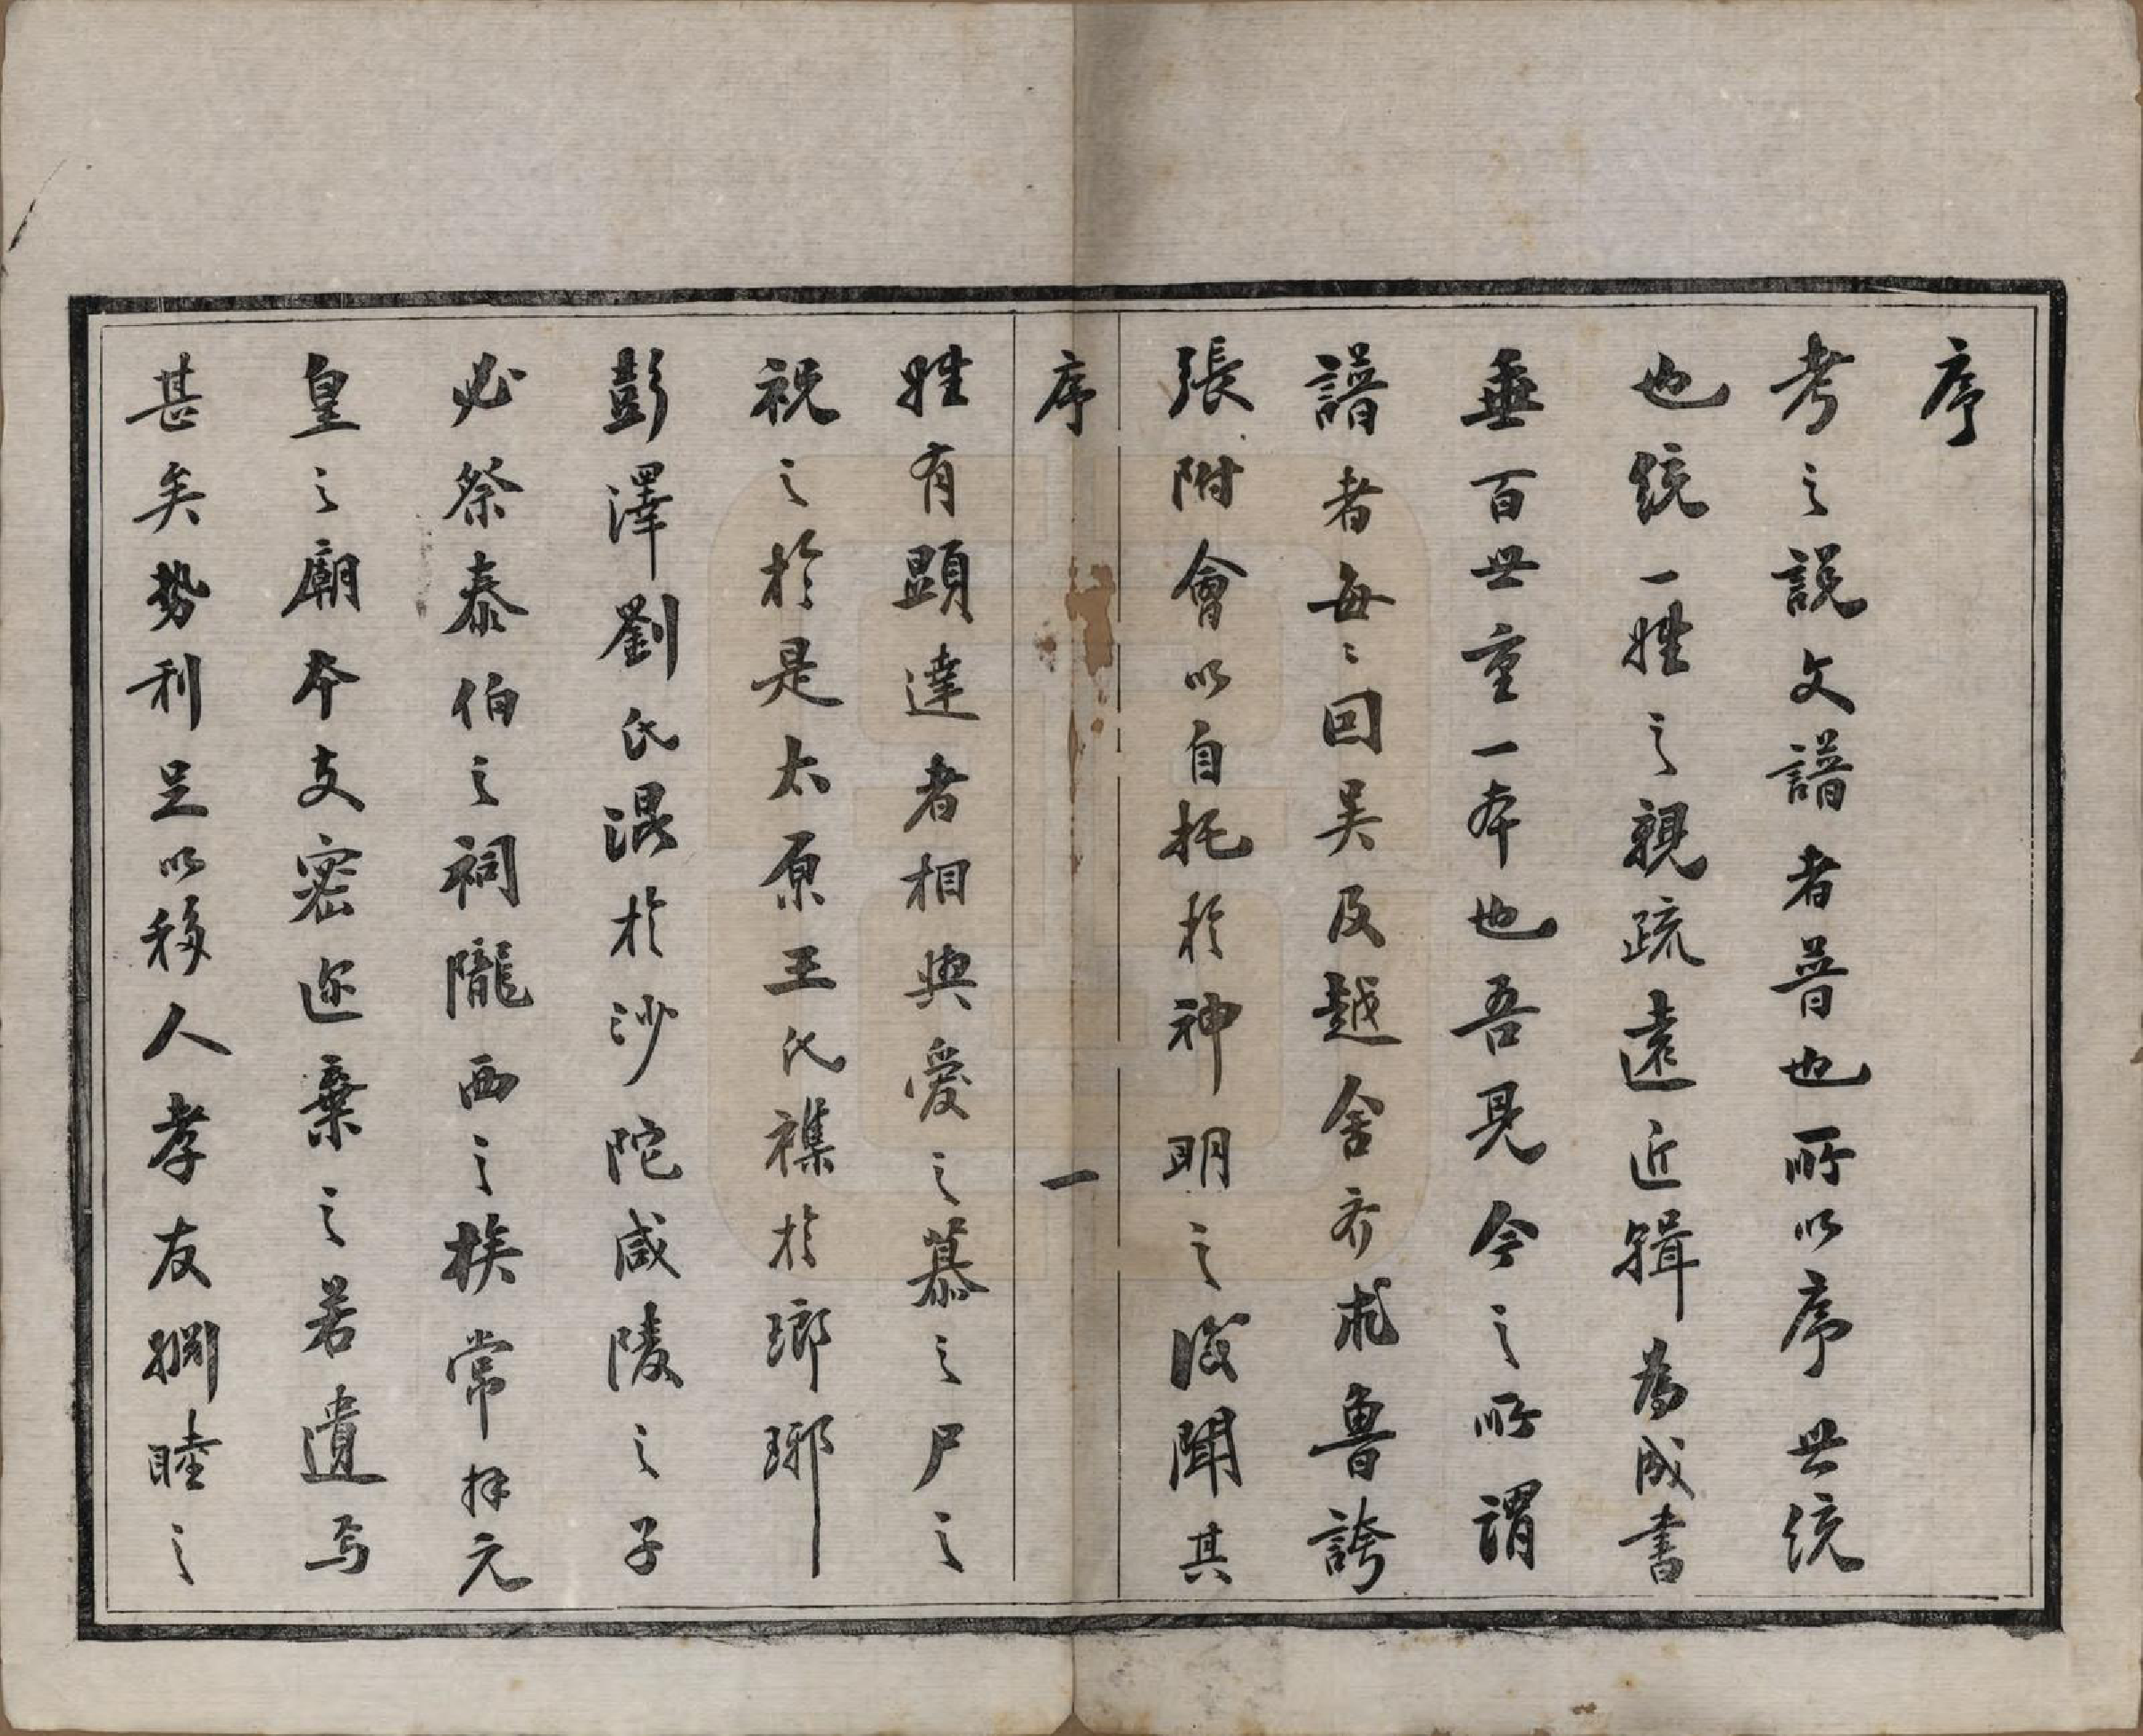 序
考之說文譜者普也所以序世統
也統一姓之親疏遠近輯為成書
垂百世重一本也吾見今之所謂
譜者每〻回吴及越舍齐求魯誇
張附會以自托於神明之後聞其
序 一
姓有顕達者相與愛之慕之尸之
祝之於是太原王氏襍於瑯琊
彭澤劉氏混於沙陀咸陵之子
必祭泰伯之祠隴西之族常拜元
皇之廟本支密迩棄之若遺焉
甚矣勢利足以移人孝友婣睦之